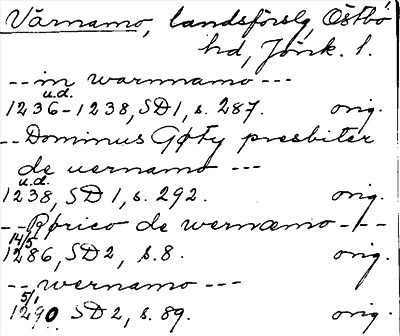 Värnamo, landsförslg, Östbo
hd, Jönk. l.
-- in warnnamo ---
u.d.
1236-1238, SD1, s. 287. orig.
-- Dominus Gøty presbiter
de uernamo ---
u.d.
1238, SD 1, s. 292. orig.
-- Rørico de wernæmo ---
14/5
1286, SD2, s. 8. orig.
-- wernamo ---
5/1
1290 SD2, s. 89. orig.